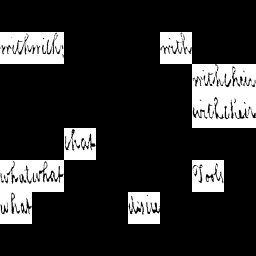 with with with
with their
with their
that
what what Tools
what desire